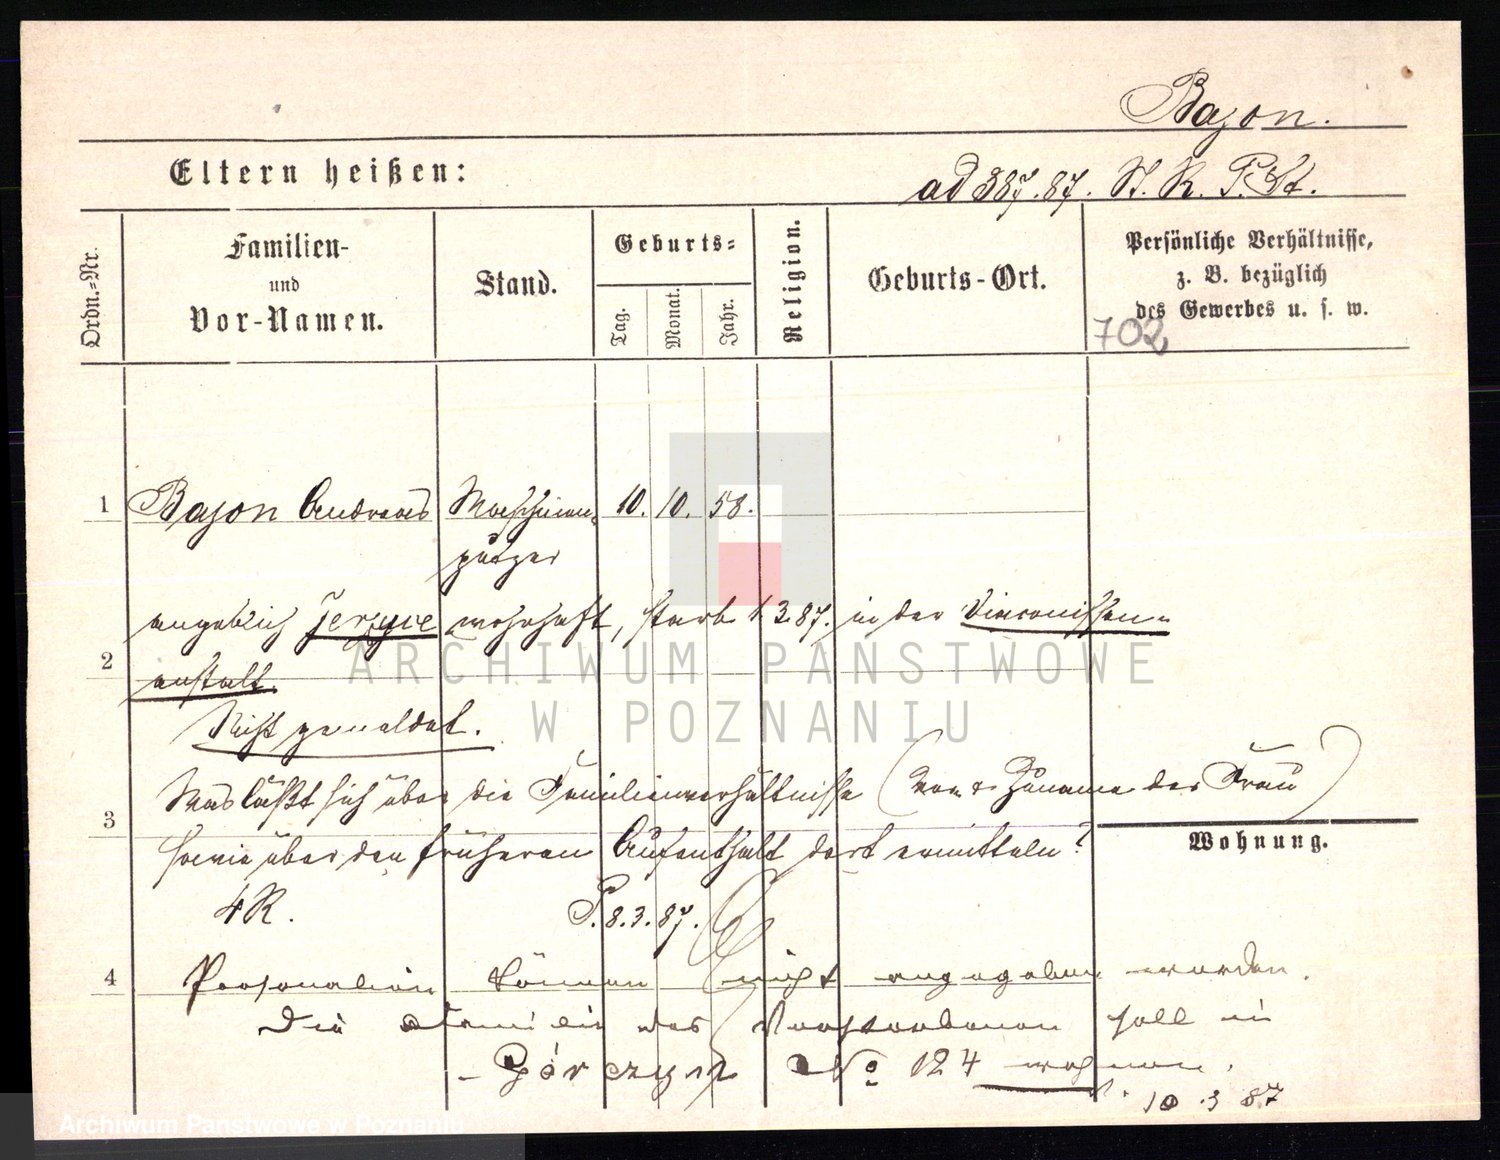 Bajon.
Eltern heißen:
ad 387.87. St. R. P. St.
Ordn.-Nr.
Familien-
und
Vor-Namen.
Stand.
Geburts-
Tag.
Monat.
Jahr.
Religion.
Geburts-Ort.
Persönliche Verhältnisse,
z. B. bezüglich
des Gewerbes u. s. w.
702
1 Bajon Andreas Maschinen-
putzer
10. 10. 58.
angeblich Jerzyce wohnhaft, starb 1.3.87. in der Diaconissen-
2
anstalt.
Nicht gemeldet.
Was läßt sich über die Familienverhältnisse (Vor- & Zuname der Frau)
3
sowie über den früheren Aufenthalt dort ermitteln?
Wohnung.
4 R. P. 8.3.87.
4 Personalien können nicht angegeben werden.
Die Familie des Verstorbenen soll in
Górczyn No 124 wohnen.
10 3 87
ARCHIWUM PAŃSTWOWE
W POZNANIU
Archiwum Państwowe w Poznaniu